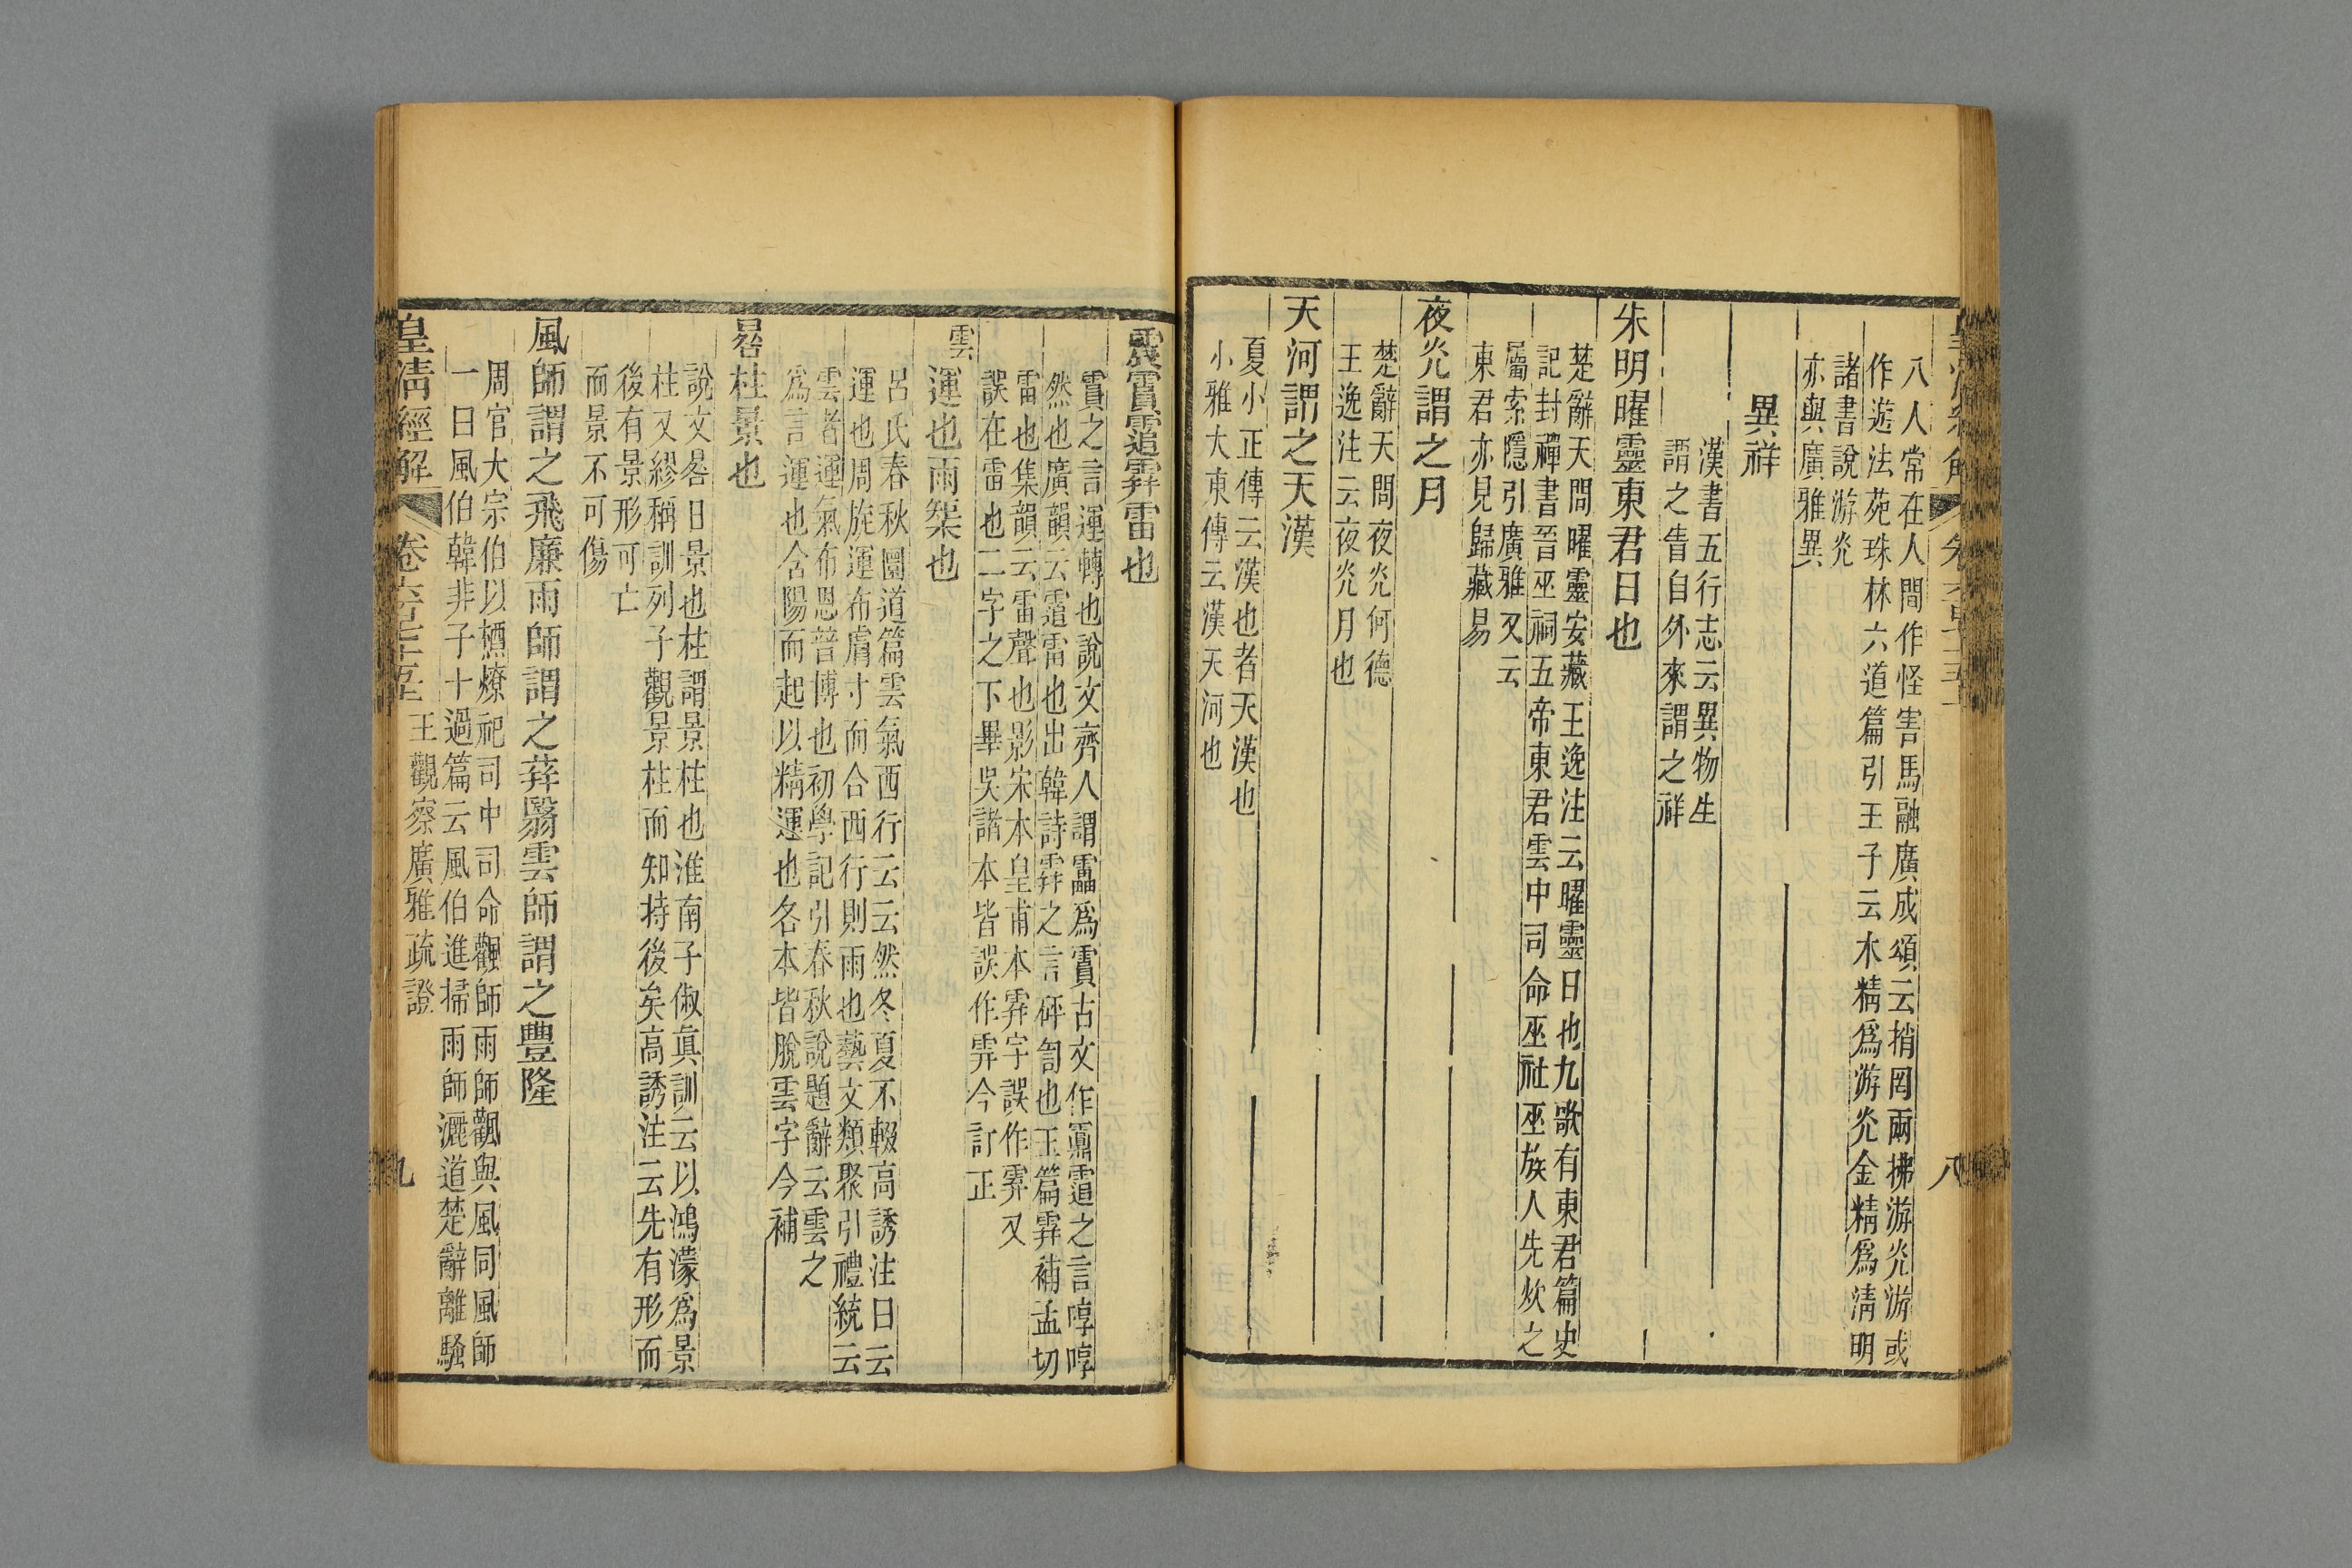 八人常在人間作怪害馬融廣成頌云捎罔兩拂游光游或
作遊法苑珠林六道篇引王子云木精爲游光金精爲清明
諸書說游光
亦與廣雅異
異祥
漢書五行志云異物生
謂之眚自外來謂之祥
朱明曜靈東君日也
楚辭天問曜靈安藏王逸注云曜靈日也九歌有東君篇史
記封禪書晉巫祠五帝東君雲中司命巫社巫族人先炊之
屬索隱引廣雅又云
東君亦見歸藏易
夜光謂之月
楚辭天問夜光何德
王逸注云夜光月也
天河謂之天漢
夏小正傳云漢也者天漢也
小雅大東傳云漢天河也
八
霣䨓霹雷也
霣之言運轉也說文齊人謂靁爲霣古文作䨓之言啍啍
然也廣韻云雷也出韓詩霹之言砰訇也玉篇霹補孟切
雷也集韻云雷聲也影宋本皇甫本霹字誤作霁又
誤在雷也二字之下畢吳諸本皆誤作霁今訂正
雲運也雨榘也
呂氏春秋圜道篇雲氣西行云云然冬夏不輟高誘注曰云
運也周旋運布膚寸而合西行則雨也藝文類聚引禮統云
雲者運氣布恩普博也初學記引春秋說題辭云雲之
爲言運也含陽而起以精運也各本皆脫雲字今補
晷柱景也
說文晷日景也柱謂景柱也淮南子俶眞訓云以鴻濛爲景
柱又繆稱訓列子觀景柱而知持後矣高誘注云先有形而
後有景形可亡
而景不可傷
風師謂之飛廉雨師謂之荓翳雲師謂之豐隆
周官大宗伯以槱燎祀司中司命飌師雨師飌與風同風師
一曰風伯韓非子十過篇云風伯進掃雨師灑道楚辭離騷
皇清經解 卷六百七十五 王觀察廣雅疏證
九